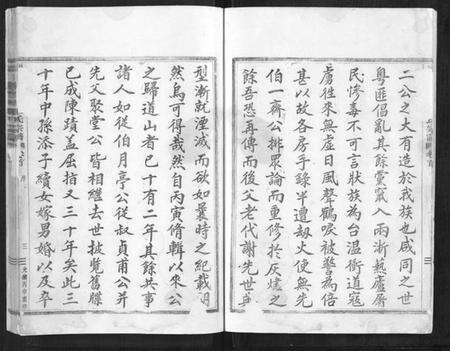 二公之大有造於我族也咸同之世
粵匪倡亂其餘黨竄入兩浙蓺廬屠
民慘毒不可言狀族為台溫衝道寇
虜往來無虛日風聲鶴唳被警為倍
甚以故各房手錄半遭刼火使無先
伯一齋公排眾論而重修於灰燼之
餘吾恐再傳而後父老代謝先世典
型漸就湮滅而欲如曩時之紀載明
然烏可得哉然自丙寅脩輯以來公
之歸道山者已十有二年其餘共事
諸人如從伯月亭公從叔貞甫公并
先父聚堂公皆相繼去世披覽舊牒
已成陳蹟盖屈指又三十年矣此三
十年中孫添子續女嫁男婚以及卒
氏宗譜
序
三
光緒丙申重修